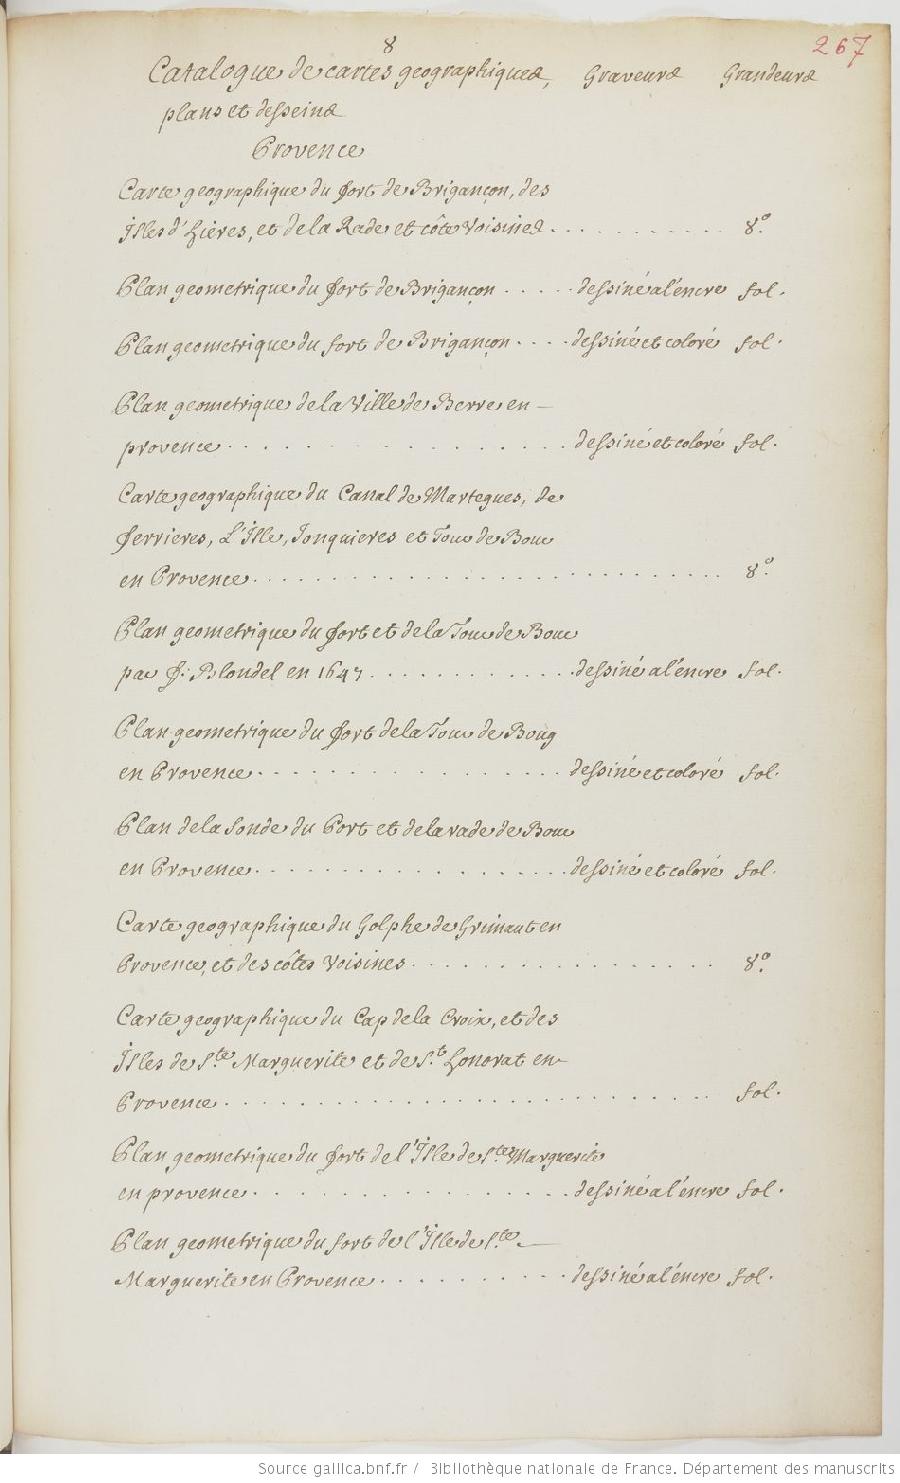 8
267
Catalogue de cartes geographiques, Graveurs Grandeurs
plans et desseins
Provence
Carte geographique du fort de Brigançon, des
Isles d'hières, et de la Rade et côte voisines . . . . . . . . . . . 8°.
Plan geometrique du fort de Brigançon . . . . . dessiné a l'encre fol.
Plan geometrique du fort de Brigançon . . . . dessiné et coloré fol.
Plan geometrique de la Ville de Berre en –
provence . . . . . . . . . . . . . . dessiné et coloré fol.
Carte geographique du Canal de Martegues, de
ferrieres, L'Isle, Jonquieres et Tour de Bouc
en Provence . . . . . . . . . . . . . . . . . . . . . . . . . 8°.
Plan geometrique du fort et de la Tour de Bouc
par f. Blondel en 1647 . . . . . . . . . . . . dessiné a l'encre fol.
Plan geometrique du fort de la Tour de Boug
en Provence . . . . . . . . . . . . . . . dessiné et coloré fol.
Plan de la sonde du Port et de la rade de Bouc
en Provence . . . . . . . . . . . . . . . . dessiné et coloré fol.
Carte geographique du Golphe de Grimaut en
Provence, et des côtes voisines . . . . . . . . . . . . . . . 8°.
Carte geographique du Cap de la Croix, et des
Isles de S.te Marguerite et de S.t honorat en –
Provence . . . . . . . . . . . . . . . . . . . . . . . . . . fol.
Plan geometrique du fort de l'Isle de S.te Marguerite
en provence . . . . . . . . . . . . . . . dessiné a l'encre fol.
Plan geometrique du fort de l'Isle de S.te –
Marguerite en Provence . . . . . . . . . . dessiné a l'encre fol.
Source gallica.bnf.fr / Bibliothèque nationale de France. Département des manuscrits